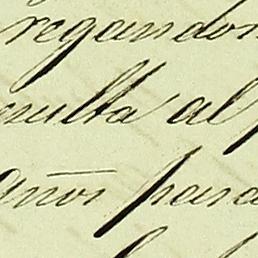 regandon
sulta al
años para